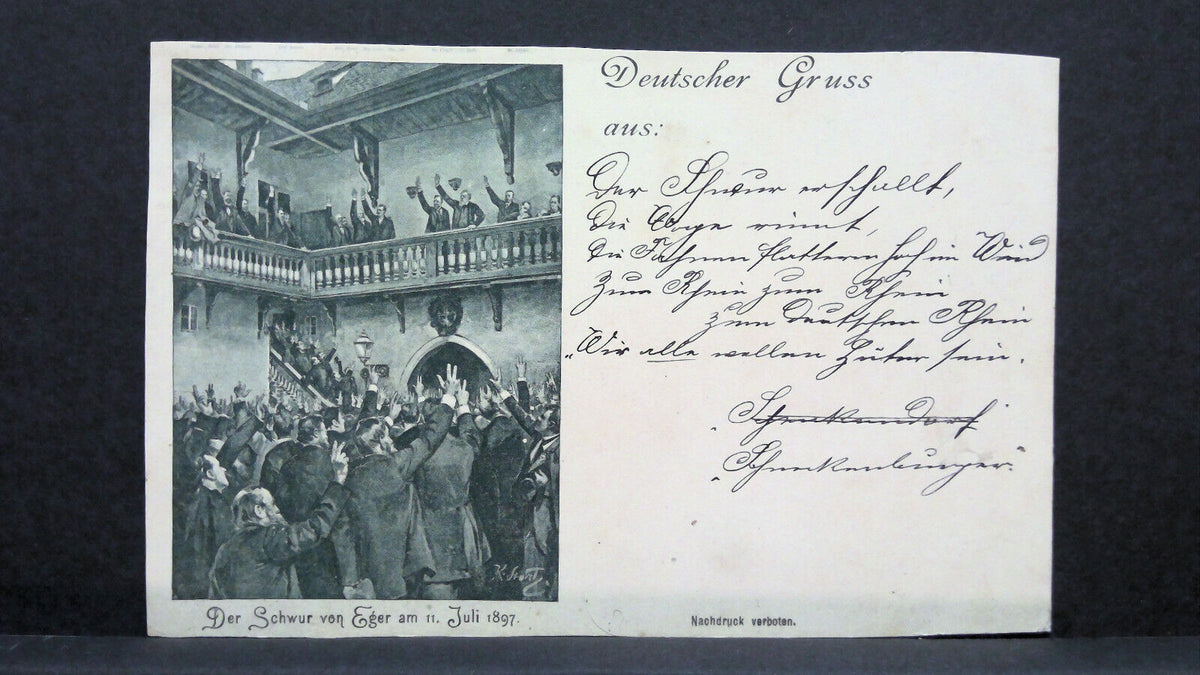 Deutscher Gruss
aus:
Der Schwur erschallt,
die Woge rinnt,
die Fahnen flattern hoch im Wind
Zum Rhein zum Rhein
zum deutschen Rhein
„Wir alle wollen Hüter sein.
Schenkendorf
Schneckenburger.
K. Storch
Der Schwur von Eger am 11. Juli 1897.
Nachdruck verboten.